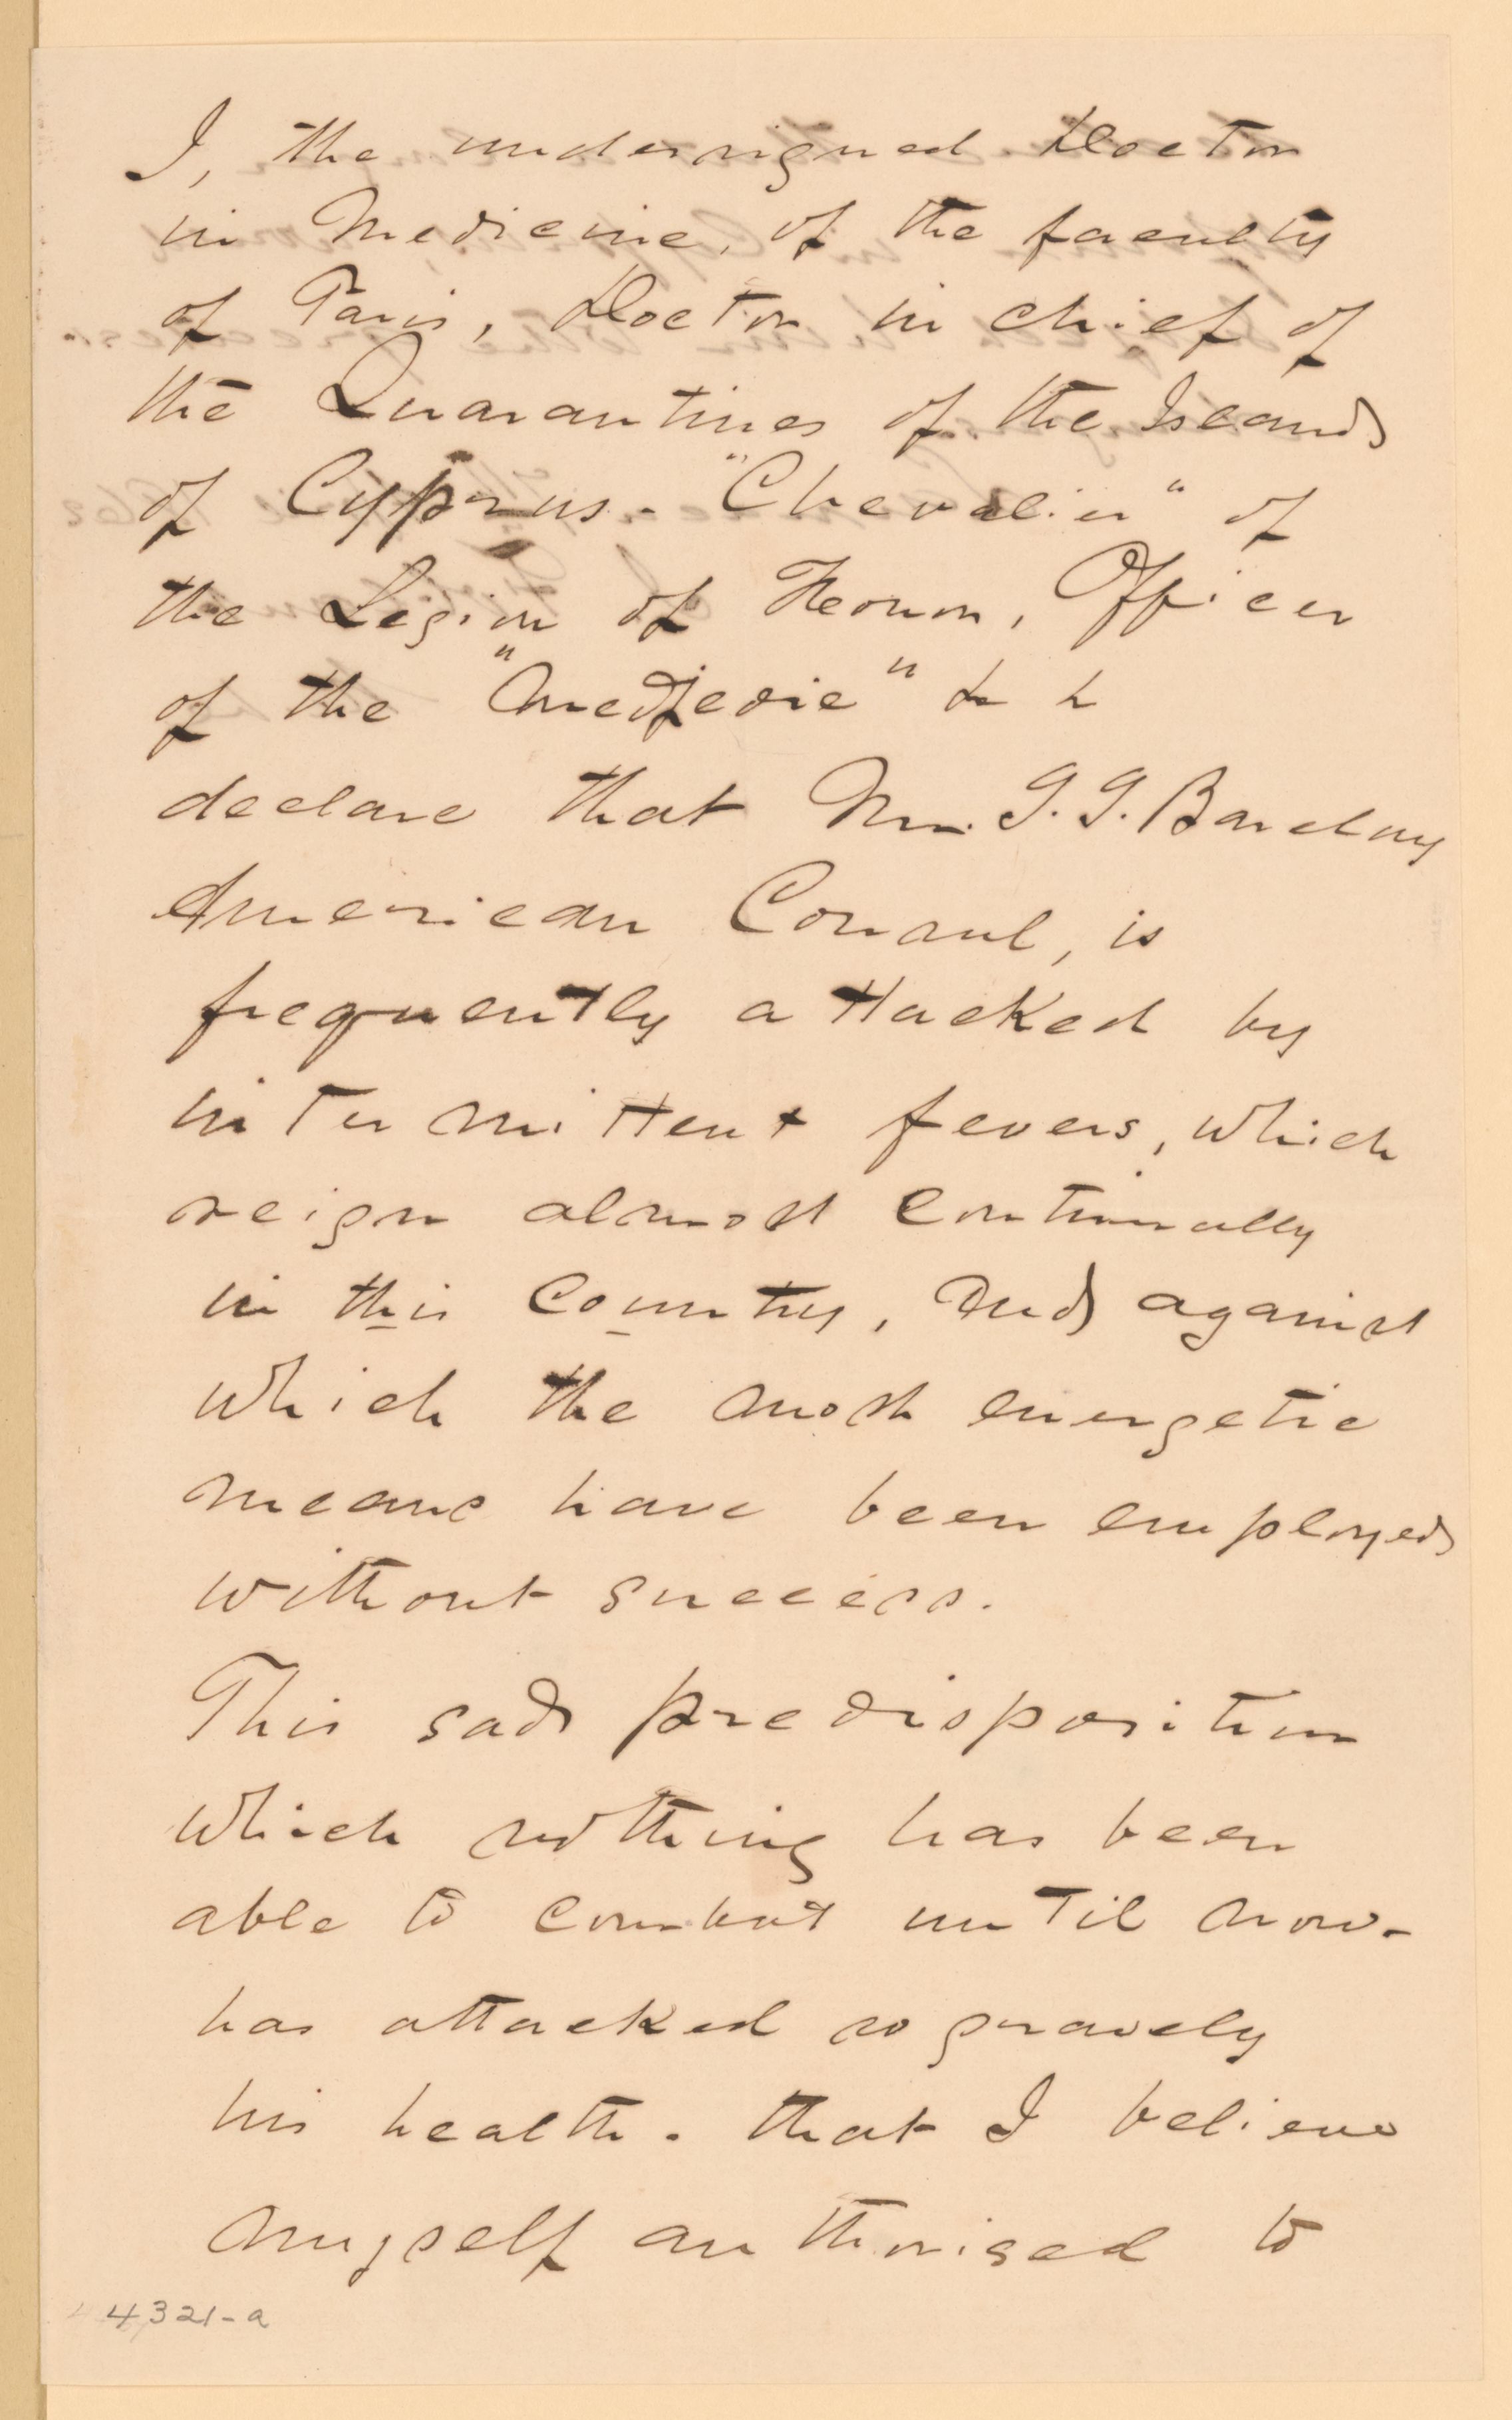 I, the undersigned Doctor
in Medicine, of the faculty
of Paris, Doctor in chief of
the Quarantines of the Island
of Cyprus - "Chevalier" of
the Legion of Honor, Officer
of the "Medjedie" &c &c
declare that Mr. J. J. Barclay
American Consul, is
frequently attacked by
intermittent fevers, which
reign almost continually
in this country, and against
which the most energetic
means have been employed
without success.
This sad predisposition
which nothing has been
able to combat until now-
has attacked so gravely
his health. that I believe
myself authorised to
4321-a